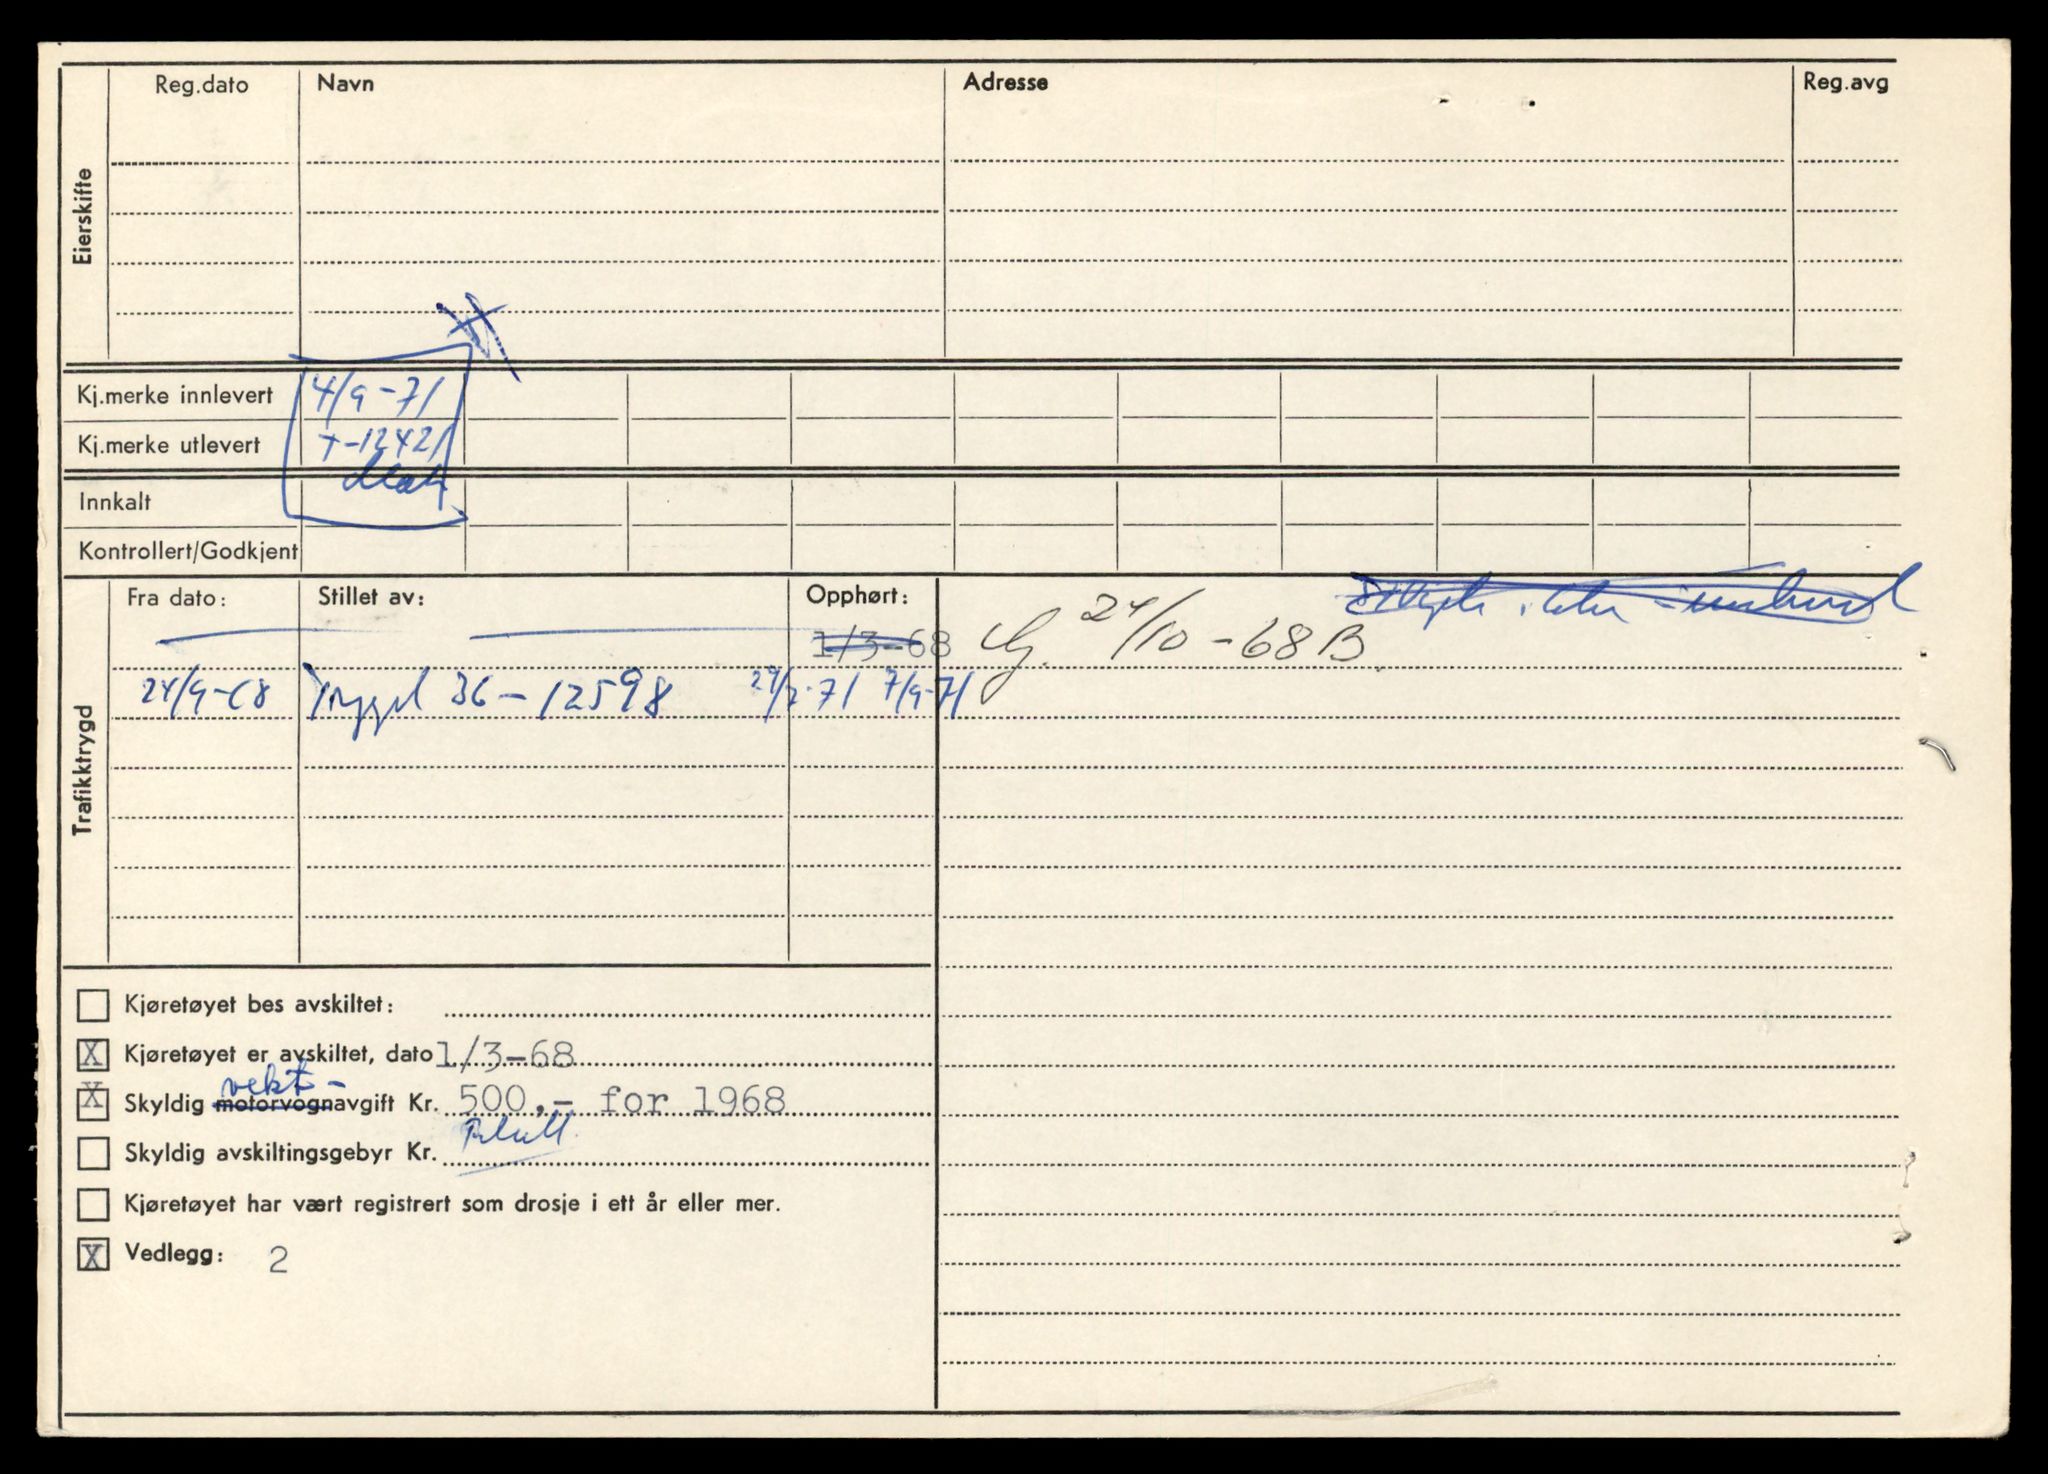 Reg.dato Navn Adresse Reg.avg
Eierskifte
Kj.merke innlevert 4/9-71
Kj.merke utlevert T-12421
Innkalt
Kontrollert/Godkjent
Trafikktrygd
Fra dato: Stillet av: Opphørt:
1/3-68 24/10-68 B
24/9-68 Trygd 36-12598 7/9-71
Kjøretøyet bes avskiltet:
X Kjøretøyet er avskiltet, dato 1/3-68
vekt-
X Skyldig motorvognavgift Kr. 500,- for 1968
Skyldig avskiltingsgebyr Kr.
Kjøretøyet har vært registrert som drosje i ett år eller mer.
X Vedlegg: 2